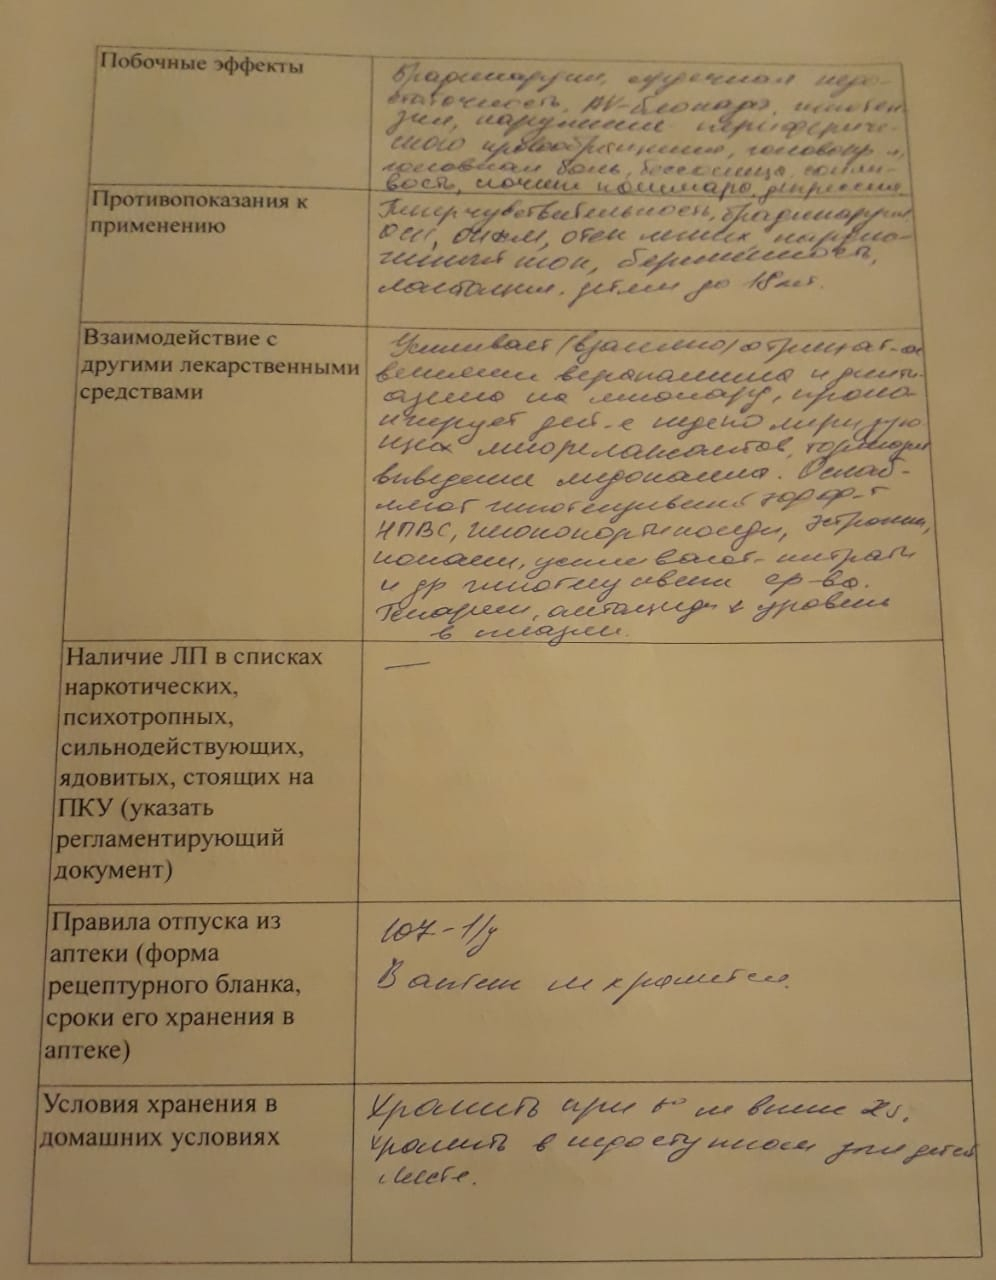 Побочные эффекты
Брадикардия, сердечная недо-
статочность, AV-блокада, гипотен
зия, нарушение перифериче-
ского кровообращения, головокр-е,
головная боль, бессонница, сонли-
вость, ночные кошмары, депрессия.
Противопоказания к
применению
Гиперчувствительность, брадикардия
отек легких, кардио-
генный шок, беременность,
лактация, детям до 18 лет.
Взаимодействие с
другими лекарственными
средствами
Усиливает (взаимно) отрицат-ое
влияние верапамила и дилти-
азема на миокард, проло-
нгирует дей-е недеполяризую
щих миорелаксантов, тормозит
выведение лидокаина. Ослаб-
ляют гипотензивный эффф-т
НПВС, глюкокортикоиды, эстрогены,
усиливают-нитраты
и др гипотензивные ср-ва.
Гепарин, антациды уровень
в плазме.
Наличие ЛП в списках
наркотических,
психотропных,
сильнодействующих,
ядовитых, стоящих на
ПКУ (указать
регламентирующий
документ)
—
Правила отпуска из
аптеки (форма
рецептурного бланка,
сроки его хранения в
аптеке)
107-1/у
В аптеке не хранится.
Условия хранения в
домашних условиях
Хранить при t° не выше 25.
Хранить в недоступном для детей
месте.